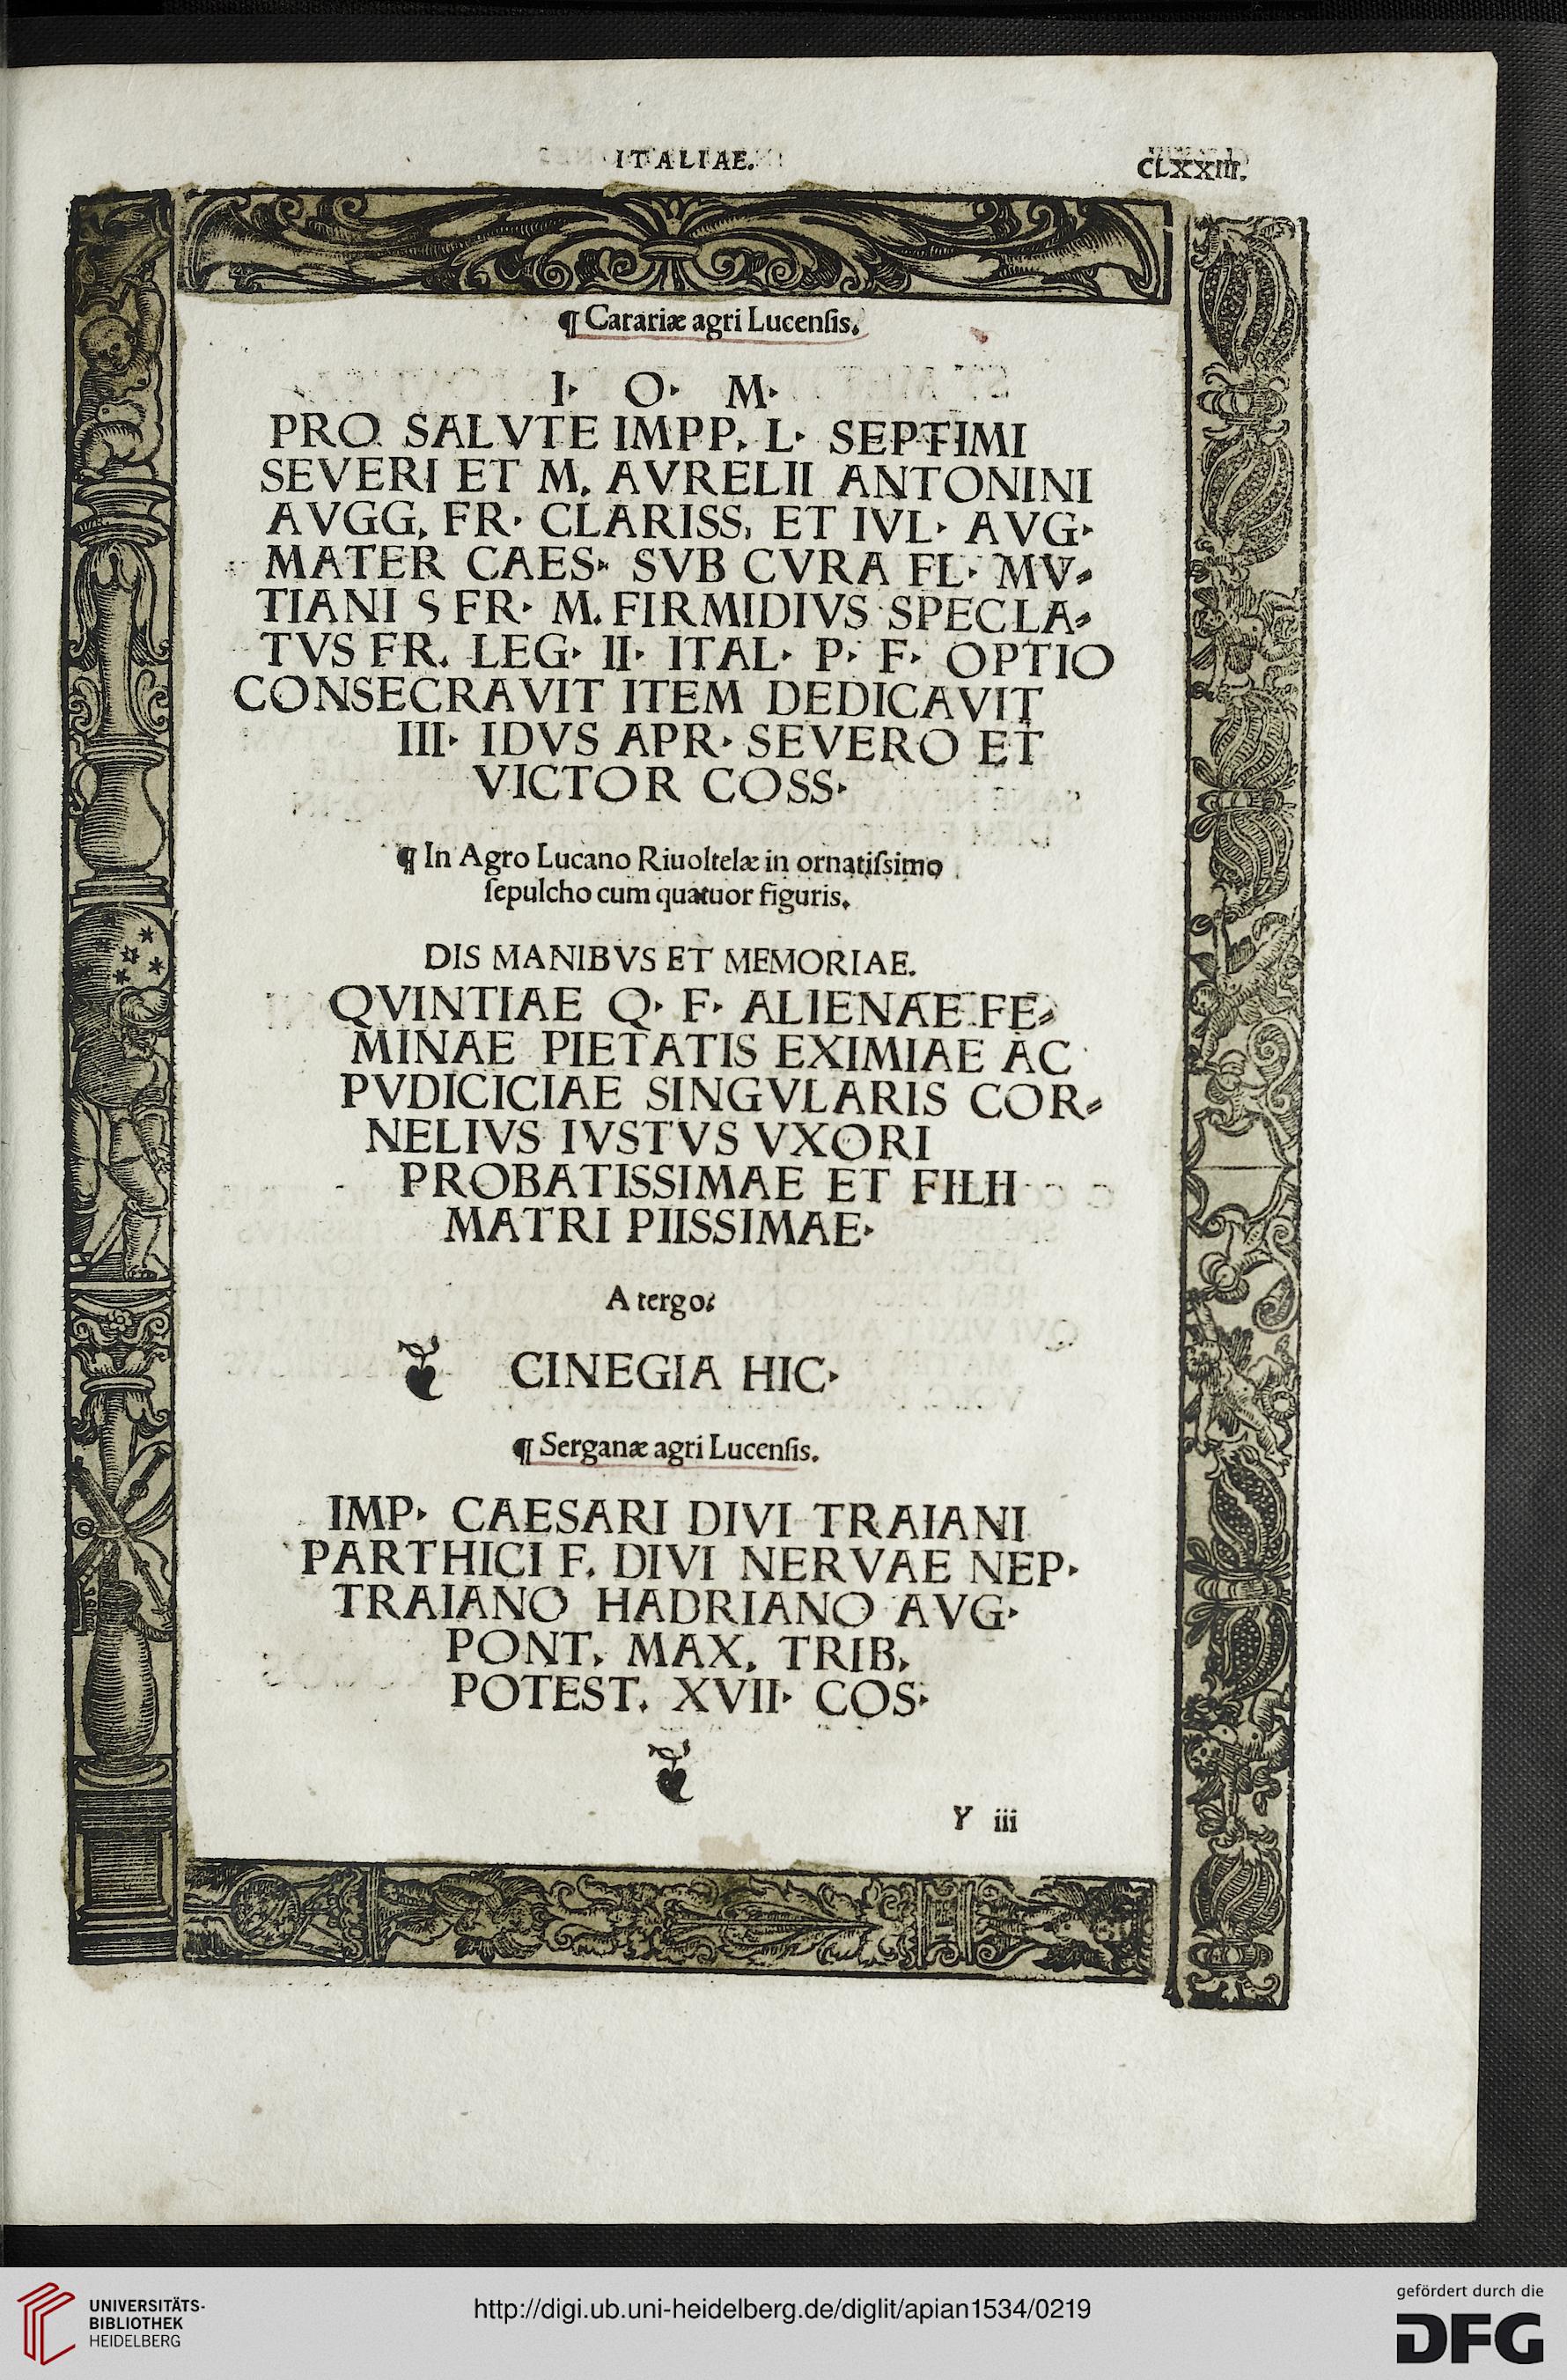 ITALIAE.
CLXXIII.
¶ Carariæ agri Lucenſis.
I· O· M·
PRO SALVTE IMPP. L· SEPTIMI
SEVERI ET M. AVRELII ANTONINI
AVGG. FR· CLARISS. ET IVL· AVG·
MATER CAES· SVB CVRA FL· MV⸗
TIANI S FR· M. FIRMIDIVS SPECLA⸗
TVS FR. LEG· II· ITAL· P· F· OPTIO
CONSECRAVIT ITEM DEDICAVIT
III· IDVS APR· SEVERO ET
VICTOR COSS·
¶ In Agro Lucano Riuoltelæ in ornatiſsimo
ſepulcho cum quatuor figuris.
DIS MANIBVS ET MEMORIAE.
QVINTIAE Q· F· ALIENAE FE⸗
MINAE PIETATIS EXIMIAE AC
PVDICICIAE SINGVLARIS COR⸗
NELIVS IVSTVS VXORI
PROBATISSIMAE ET FILII
MATRI PIISSIMAE·
A tergo:
CINEGIA HIC·
¶ Serganæ agri Lucenſis.
IMP· CAESARI DIVI TRAIANI
PARTHICI F. DIVI NERVAE NEP·
TRAIANO HADRIANO AVG·
PONT. MAX. TRIB.
POTEST. XVII· COS·
Y iii
UNIVERSITÄTS-
BIBLIOTHEK
HEIDELBERG
http://digi.ub.uni-heidelberg.de/diglit/apian1534/0219
gefördert durch die
DFG